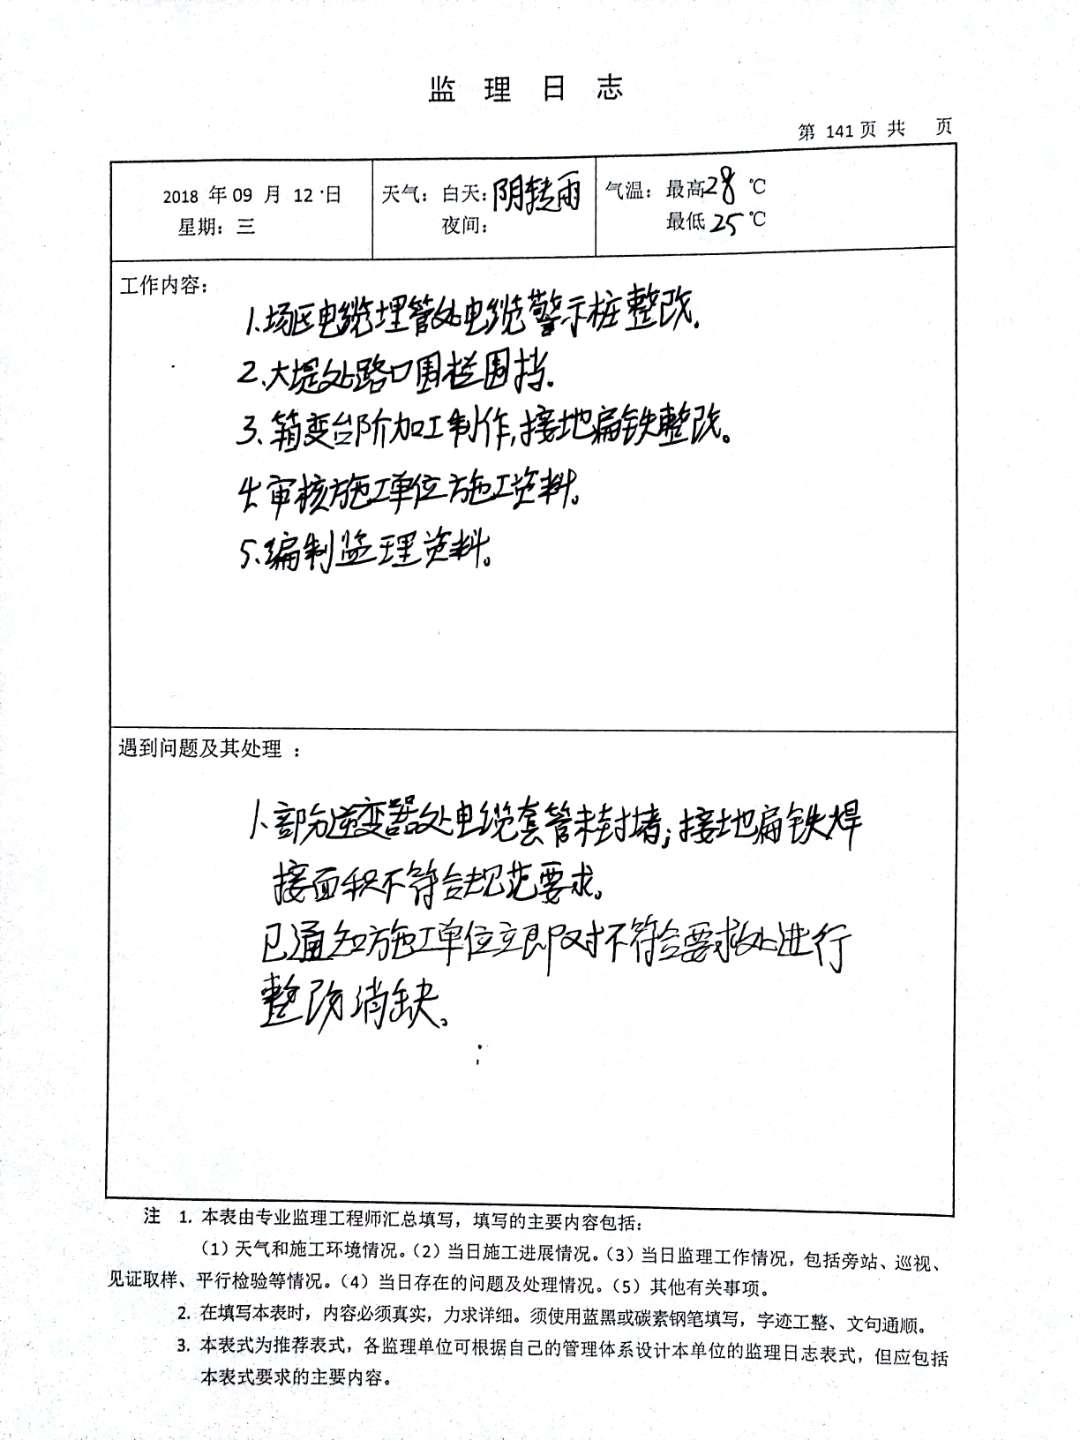 监 理 日 志
第 141 页 共 页
2018 年 09 月 12 日
星期：三
天气：白天：阴转雨
夜间：
气温：最高28℃
最低25℃
工作内容：
1.场区电缆埋管处电缆警示桩整改.
2.大堤处路口围栏围挡.
3.箱变台阶加工制作,接地扁铁整改。
4.审核施工单位施工资料。
5.编制监理资料。
遇到问题及其处理 ：
1.部分逆变器处电缆套管未封堵;接地扁铁焊
接面积不符合规范要求。
已通知施工单位立即对不符合要求处进行
整改消缺。
注 1. 本表由专业监理工程师汇总填写，填写的主要内容包括：
（1）天气和施工环境情况。（2）当日施工进展情况。（3）当日监理工作情况，包括旁站、巡视、
见证取样、平行检验等情况。（4）当日存在的问题及处理情况。（5）其他有关事项。
2. 在填写本表时，内容必须真实，力求详细。须使用蓝黑或碳素钢笔填写，字迹工整、文句通顺。
3. 本表式为推荐表式，各监理单位可根据自己的管理体系设计本单位的监理日志表式，但应包括
本表式要求的主要内容。